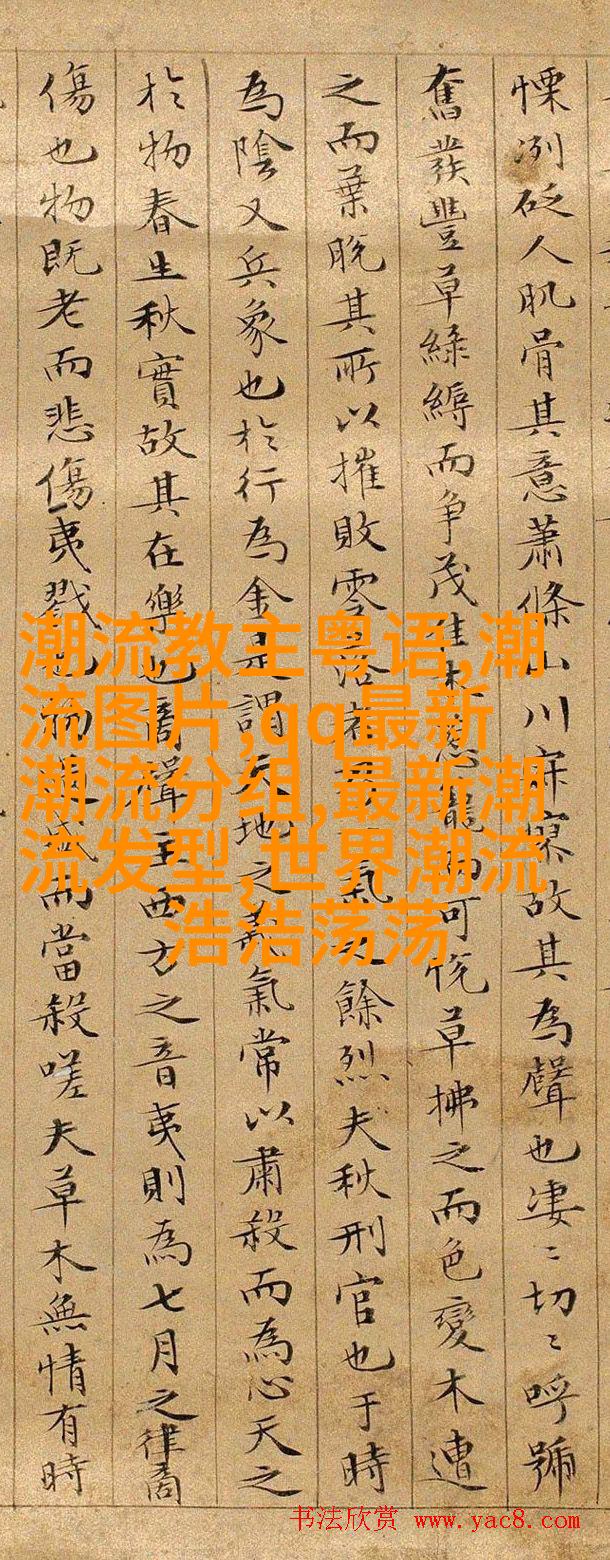 慄冽砭人肌骨其意蕭條山川寂寥故其為聲也凄〻切〻呼號
奮發豐草綠縟而爭茂佳木蔥籠而可悅草拂之而色變木遭
之而葉脫其所以摧敗零落者氣之餘烈夫秋刑官也于時
為陰又兵象也於行為金是謂天地之義氣常以肅殺而為心天之
於物春生秋實故其在樂也商聲主西方之音夷則為七月之律商
傷也物既老而悲傷夷戮也物過盛而當殺嗟夫草木無情有時
潮流教主粤语,潮
流图片,qq最新
潮流分组,最新潮
流发型,世界潮流
浩浩荡荡
书法欣赏 www.yac8.com